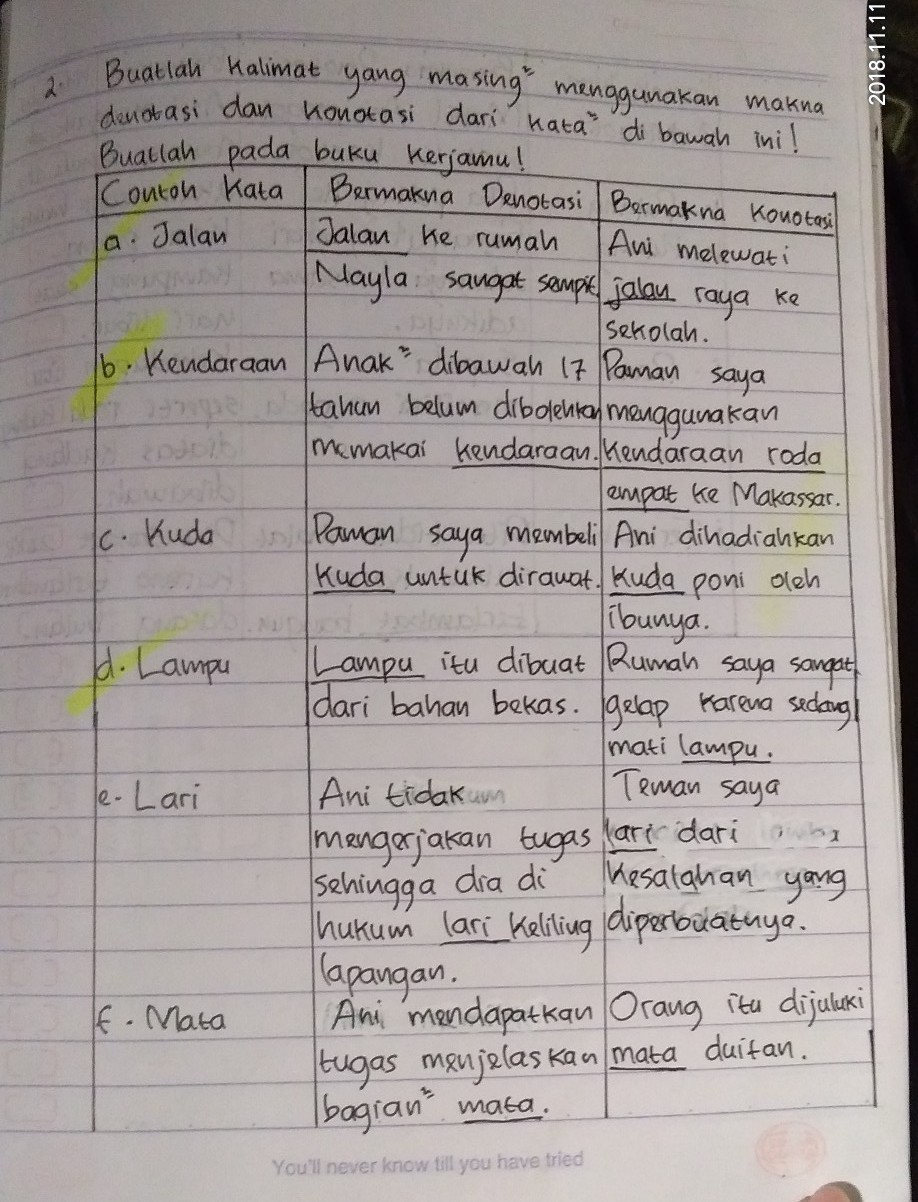 2018.11.11
2. Buatlah Kalimat yang masing² menggunakan makna
denotasi dan konotasi dari kata² di bawah ini!
Buatlah pada buku kerjamu!
Contoh Kata Bermakna Denotasi Bermakna Konotasi
a. Jalan
Jalan ke rumah
Nayla sangat sempit
Ani melewati
jalan raya ke
sekolah.
b. Kendaraan
Anak² dibawah 17
tahun belum dibolehkan
memakai kendaraan.
Paman saya
menggunakan
Kendaraan roda
empat ke Makassar.
c. Kuda
Paman saya membeli
kuda untuk dirawat.
Ani dihadiahkan
kuda poni oleh
ibunya.
d. Lampu
Lampu itu dibuat
dari bahan bekas.
Rumah saya sangat
gelap karena sedang
mati lampu.
e. Lari
Ani tidak
mengerjakan tugas
sehingga dia di
hukum lari keliling
lapangan.
Teman saya
lari dari
kesalahan yang
diperbuatnya.
f. Mata
Ani mendapatkan
tugas menjelaskan
bagian² mata.
Orang itu dijuluki
mata duitan.
You'll never know till you have tried